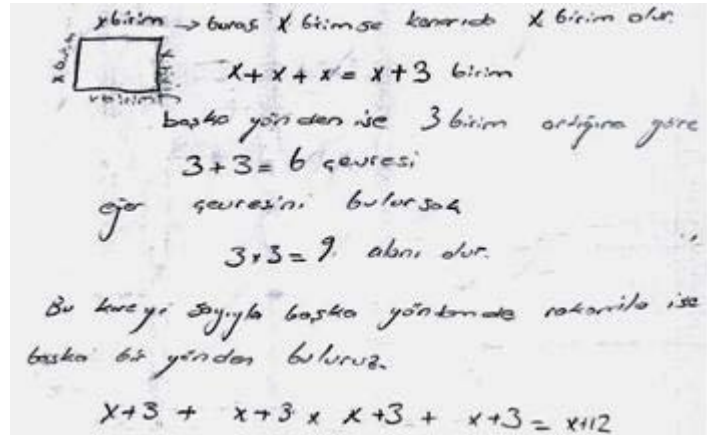 x birim → burası x birimse kenarıda x birim olur.
x birim
x birim
x birim
x + x + x = x + 3 birim
başka yönden ise 3 birim ardığına göre
3 + 3 = 6 çevresi
eğer çevresini bulursak
3 x 3 = 9 alanı olur.
Bu kareyi sayıyla başka yöntemde rakamla ise
başka bir yönden buluruz.
x+3 + x+3 x x+3 + x+3 = x+12